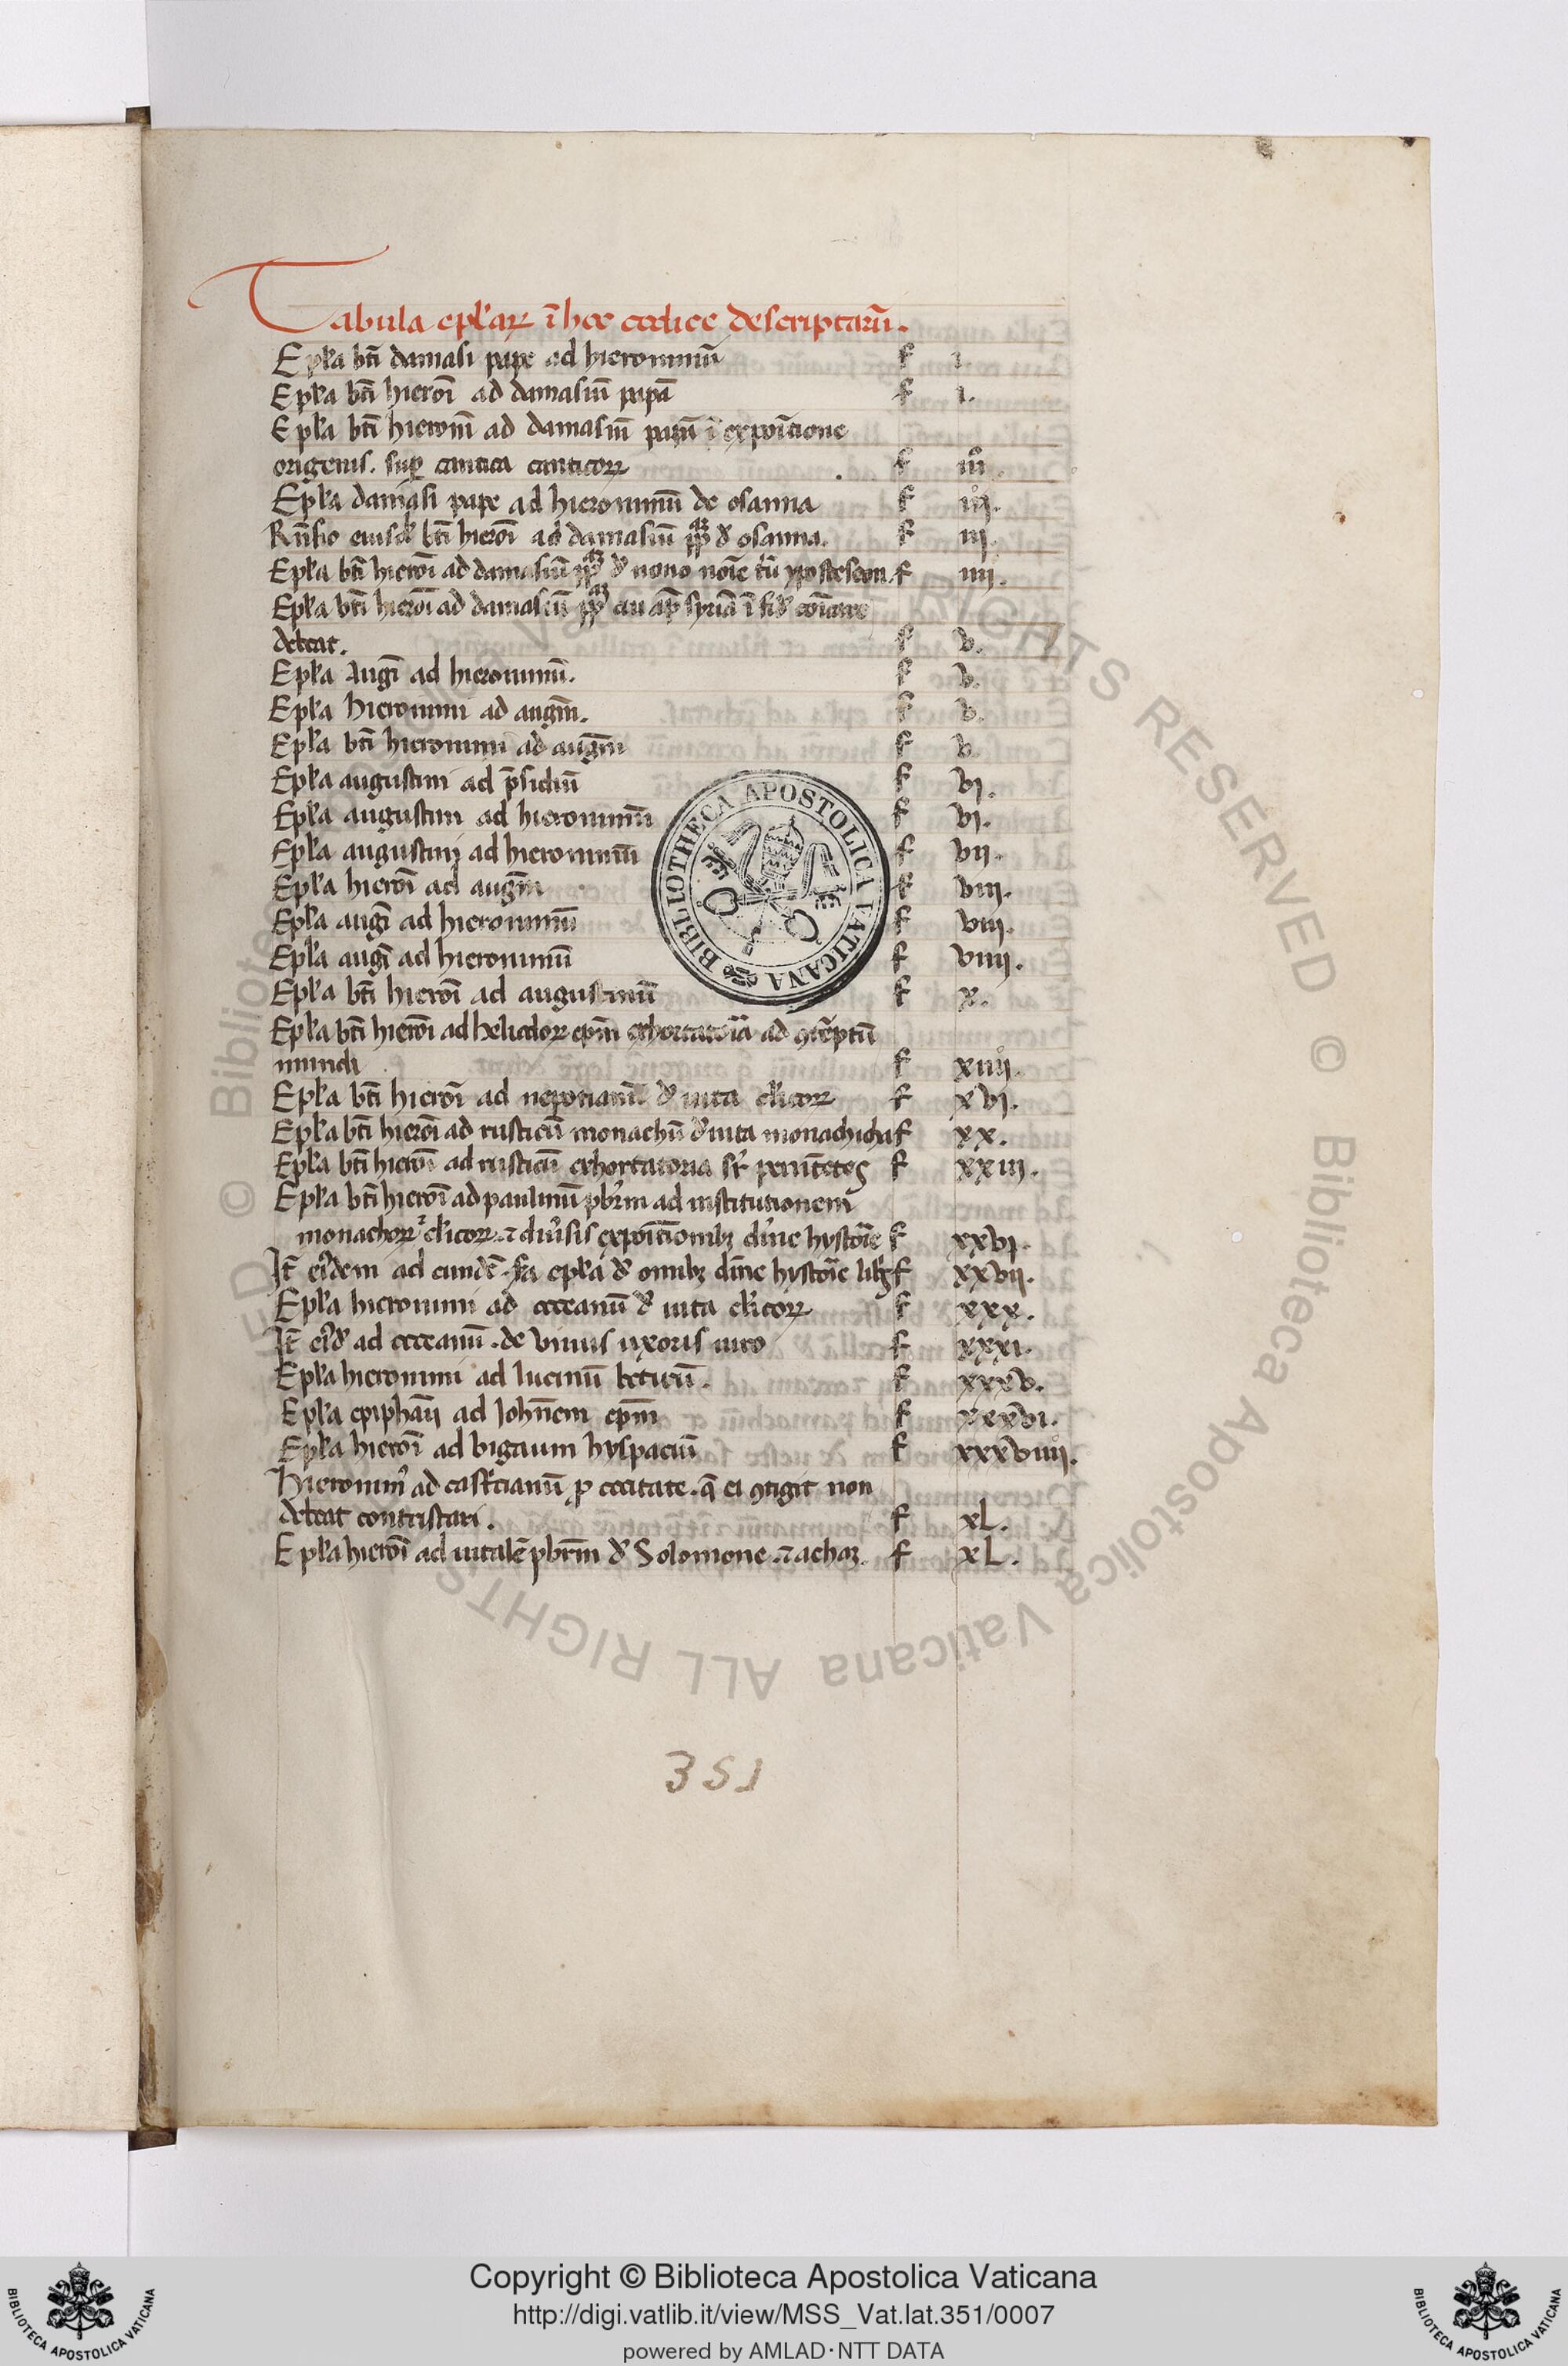 Tabula epl'aꝝ ī hoc codice descriptarū.
Epl'a bt̄i damasi pape ad hieronimū f i.
Epl'a bt̄i hieroī ad damasiū papā f i.
Epl'a bt̄i hieronī ad damasiū papā ī expoītione
origenis. sup̱ cantica canticoꝝ f
Epl'a damasi pape ad hieronimū de osanna f iij.
Rn̄sio eiusd' bt̄i hieroī ad damasiū pp̄ d' osanna. f iij.
Epl'a bt̄i hieroī ad damasiū pp̄ d' nouo noīe triū ypostaseon. f iiij.
Epl'a bt̄i hieroī ad damasiū pp̄ cui ap̄ syriā ī fid' coīcare
debeat. f v.
Epl'a Augī ad hieronimū. f v.
Epl'a Hieronimi ad augm̄. f v.
Epl'a bt̄i hieronimi ad augm̄ f v.
Epl'a augustini ad p̄sidiū f vi.
Epl'a augustini ad hieronimū f vi.
Epl'a augustinj ad hieronimū f vij.
Epl'a hieroī ad augm̄ f viij.
Epl'a augī ad hieronimū f viij.
Epl'a augī ad hieronimū f viiij.
Epl'a bt̄i hieroī ad augustinū f x.
Epl'a bt̄i hieroī ad heliodoꝝ ep̄m exhortatoīa ad ꝯtēptū
mundi f xiiij.
Epl'a bt̄i hieroī ad nepotianū d' uita cl'icoꝝ f xvi.
Epl'a bt̄i hieroī ad rusticū monachū d' uita monachicha f xx.
Epl'a bt̄i hieroī ad rusticū exhortatoria sr' penitētes f xxiij.
Epl'a bt̄i hieroī ad paulinū pbr̄m ad institutionem
monachoꝝ ⁊ cl'icoꝝ. ⁊ diu'sis expoītionibꝫ diīne hystoīe f xxvi.
It̄ eiꝰdem ad eundē. fa epl'a d' omībꝫ diīne hystoīe lib̄ f xxvij.
Epl'a hieronimi ad occeanū d' uita cl'icoꝝ f xxx.
It̄ eiꝰd' ad occeanū. de vnius uxoris uiro f xxxi.
Epl'a hieronimi ad lucinū beticū. f xxxv.
Epl'a epiphāij ad John̄em ep̄m f xxxvi.
Epl'a hieroī ad bigtium hyspaciū f xxxviiij.
Hieronimꝰ ad castr̄cianū ꝓ cecitate. q̄ ei ꝯtigit non
debeat contristari. f xL.
Epl'a hieroī ad uitalē pbr̄m d' Solomone. ⁊ achaz. f xL.
BIBLIOTHECA APOSTOLICA VATICANA
351
Copyright © Biblioteca Apostolica Vaticana
http://digi.vatlib.it/view/MSS_Vat.lat.351/0007
powered by AMLAD·NTT DATA
BIBLIOTECA APOSTOLICA VATICANA
BIBLIOTECA APOSTOLICA VATICANA